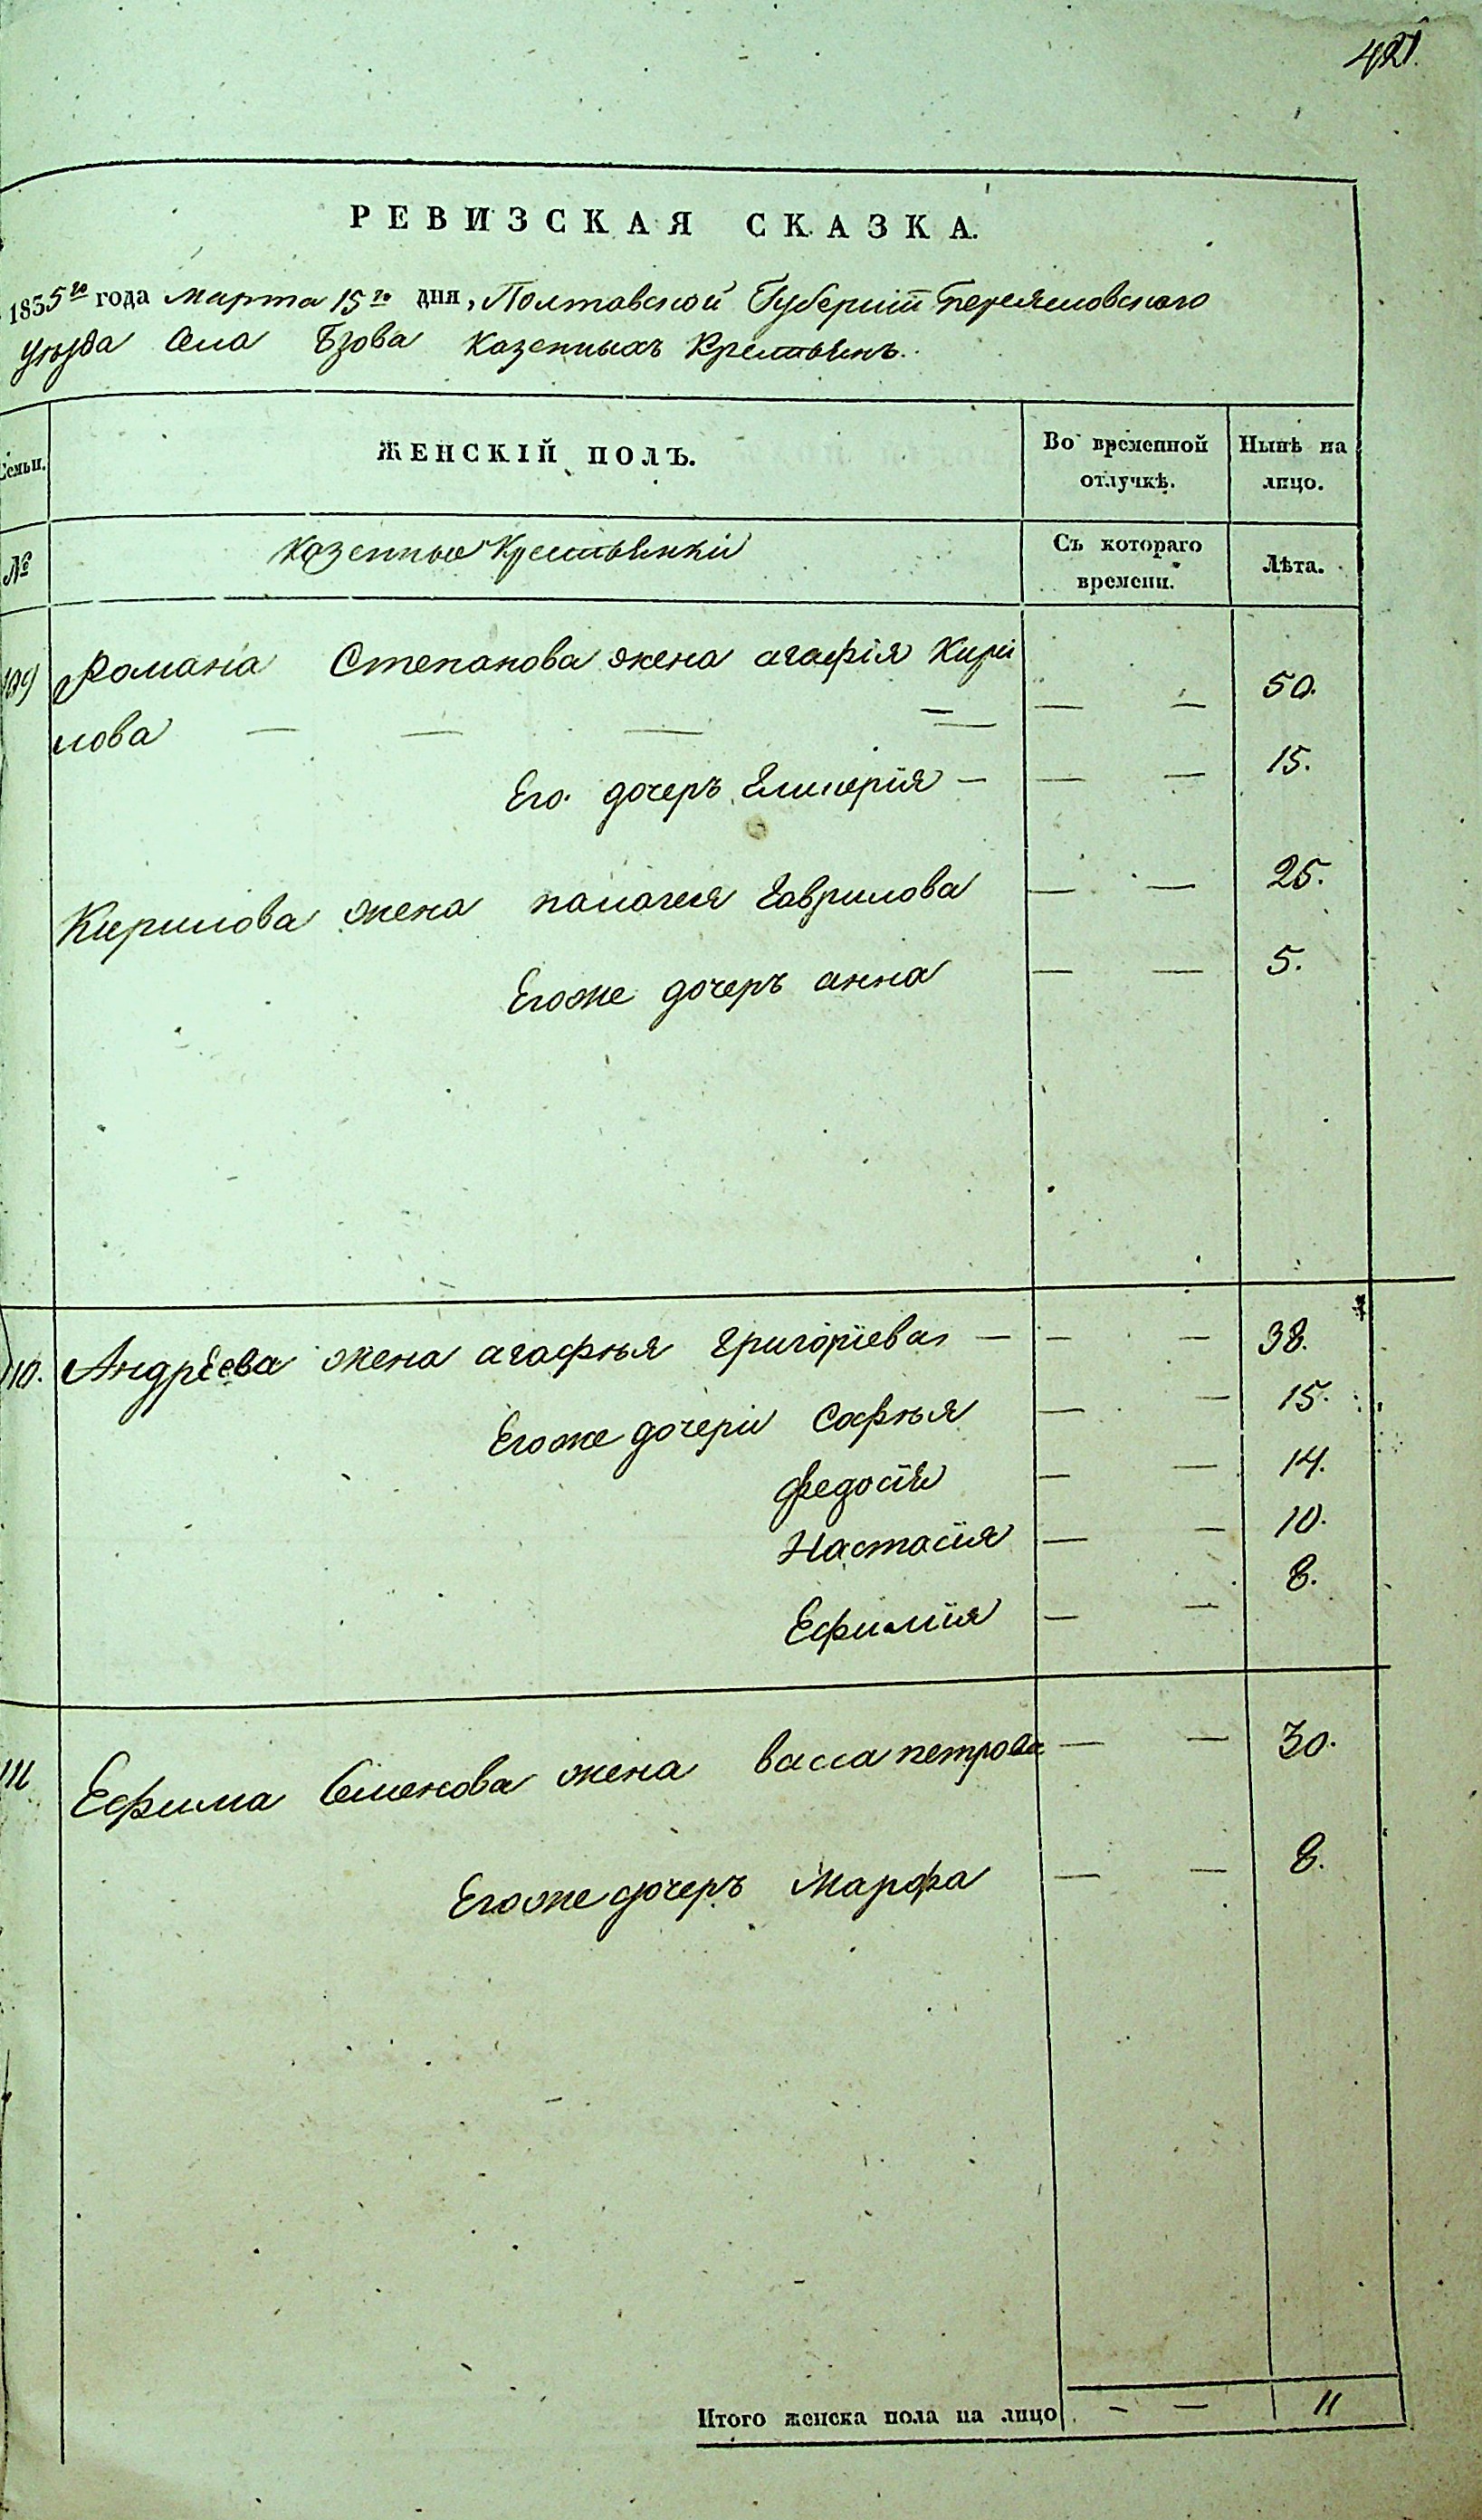 421.
РЕВИЗСКАЯ СКАЗКА.
1835го года марта 15го дня, Полтавской Губернїи Переяславского
уезда Села Бзова Казенныхъ Крестьянъ.
Семьи. ЖЕНСКІЙ ПОЛЪ. Во временной отлучкѣ. Нынѣ на лицо.
№ Казенные Крестьянки Съ котораго времени. Лѣта.
109 Романа Степанова жена агафія Кири
лова — — — — — — 50.
Его дочеръ — — — 15.
Кирилова жена палагея Гаврилова — — 25.
Егоже дочеръ анна — — 5.
110. Андреева жена агафья григорїева — — — 38.
Егоже дочери Софья — — 15.
федосїя — — 14.
Настасїя — — 10.
Ефимїя — — 8.
111 Ефима Семенова жена васса петрова — — 30.
Егоже дочеръ Марфа — — 8.
Итого женска пола на лицо — — 11